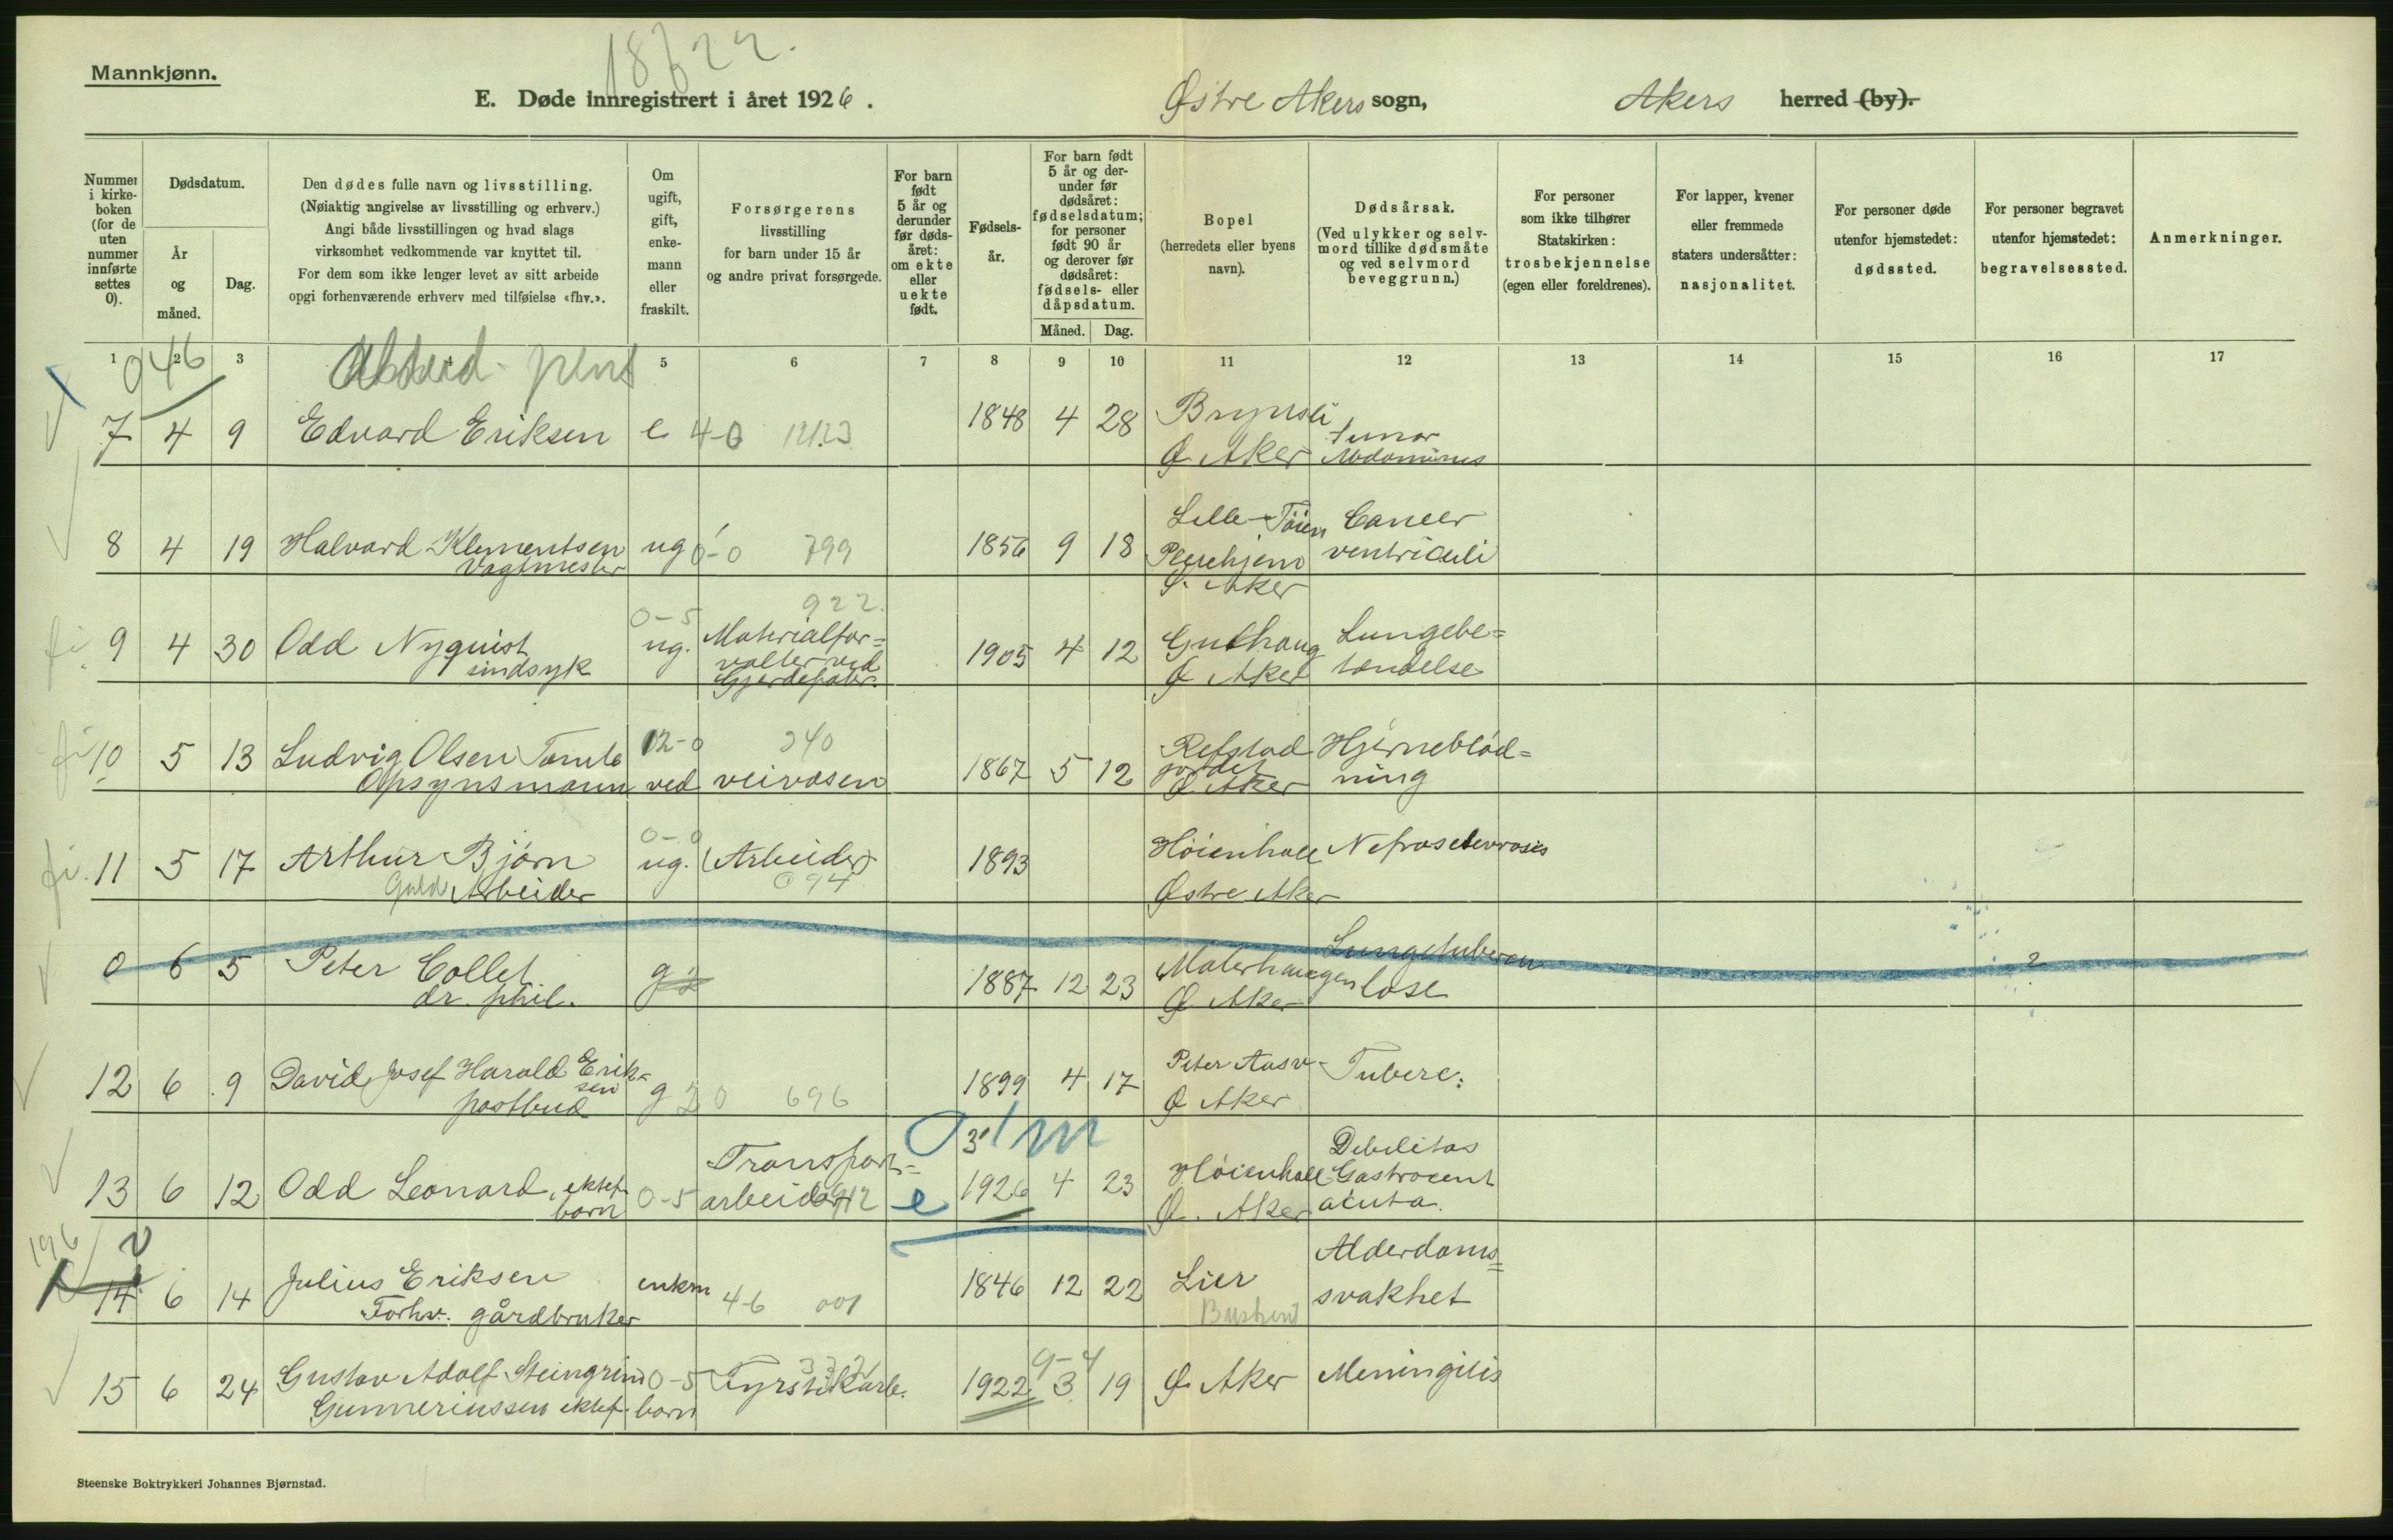 18622.
Mannkjønn.
E. Døde innregistrert i året 1926.
Østre Akers sogn,
Akers herred (by).
Nummer i kirkeboken (for de uten nummer innførte settes 0).
Dødsdatum.
År og måned.
Dag.
Den dødes fulle navn og livsstilling.
(Nøiaktig angivelse av livsstilling og erhverv.)
Angi både livsstillingen og hvad slags
virksomhet vedkommende var knyttet til.
For dem som ikke lenger levet av sitt arbeide
opgi forhenværende erhverv med tilføielse «fhv.».
Om ugift, gift, enkemann eller fraskilt.
Forsørgerens
livsstilling
for barn under 15 år
og andre privat forsørgede.
For barn født 5 år og derunder før dødsåret: om ekte eller uekte født.
Fødselsår.
For barn født 5 år og derunder før dødsåret: fødselsdatum; for personer født 90 år og derover før dødsåret: fødsels- eller dåpsdatum.
Måned. Dag.
Bopel
(herredets eller byens
navn).
Dødsårsak.
(Ved ulykker og selvmord tillike dødsmåte og ved selvmord beveggrunn.)
For personer
som ikke tilhører
Statskirken:
trosbekjennelse
(egen eller foreldrenes).
For lapper, kvener
eller fremmede
staters undersåtter:
nasjonalitet.
For personer døde
utenfor hjemstedet:
dødssted.
For personer begravet
utenfor hjemstedet:
begravelsessted.
Anmerkninger.
1 2 3 5 6 7 8 9 10 11 12 13 14 15 16 17
046
7 4 9 Edvard Eriksen e 4-0 1848 4 28 Brynsli
Ø Aker tumor Abdominis
8 4 19 Halvard Klementsen ug 0-0 799 1856 9 18 Lille-Tøien Cancer
Vagtmester Pleiehjem ventriculi
Ø. Aker
0-5 922.
9 4 30 Odd Nyquist ug. Materialfor=
sindsyk valter ved Gjerdefabr. 1905 4 12 Guthaug Lungebe=
Ø Aker tændelse
12-0 340
10 5 13 Ludvig Olsen Tomte 1867 5 12 Refstad Hjerneblød=
Opsynsmann ved veivæsen jordet Ø Aker ning
0-0
11 5 17 Arthur Bjørn ug. (Arbeider) 1893 Høienhall Nefrosclerosis
Guld Arbeider 094 Østre Aker
0 6 5 Peter Collet g 1887 12 23 Malerhaugen Lungetubercu
dr. phil. Ø Aker lose
2
12 6 9 David Josef Harald Eriksen 1899 4 17 Peter Aasv. Tuberc:
postbud g 696 Ø Aker
13 6 12 Odd Leonard, ektef. barn 0-5 Transport=
arbeider e 1926 4 23 Høienhall Debilitas
Ø. Aker Gastroent
acuta.
196
14 6 14 Julius Eriksen enkm 4-6 001 1846 12 22 Lier Alderdoms=
Forhv. gårdbruker svakhet
15 6 24 Gustav Adolf Steingrim 0-5 Fyrstikarb. 1922 3 19 Ø Aker Meningitis
Gunneriussen ektef. barn
Steenske Boktrykkeri Johannes Bjørnstad.